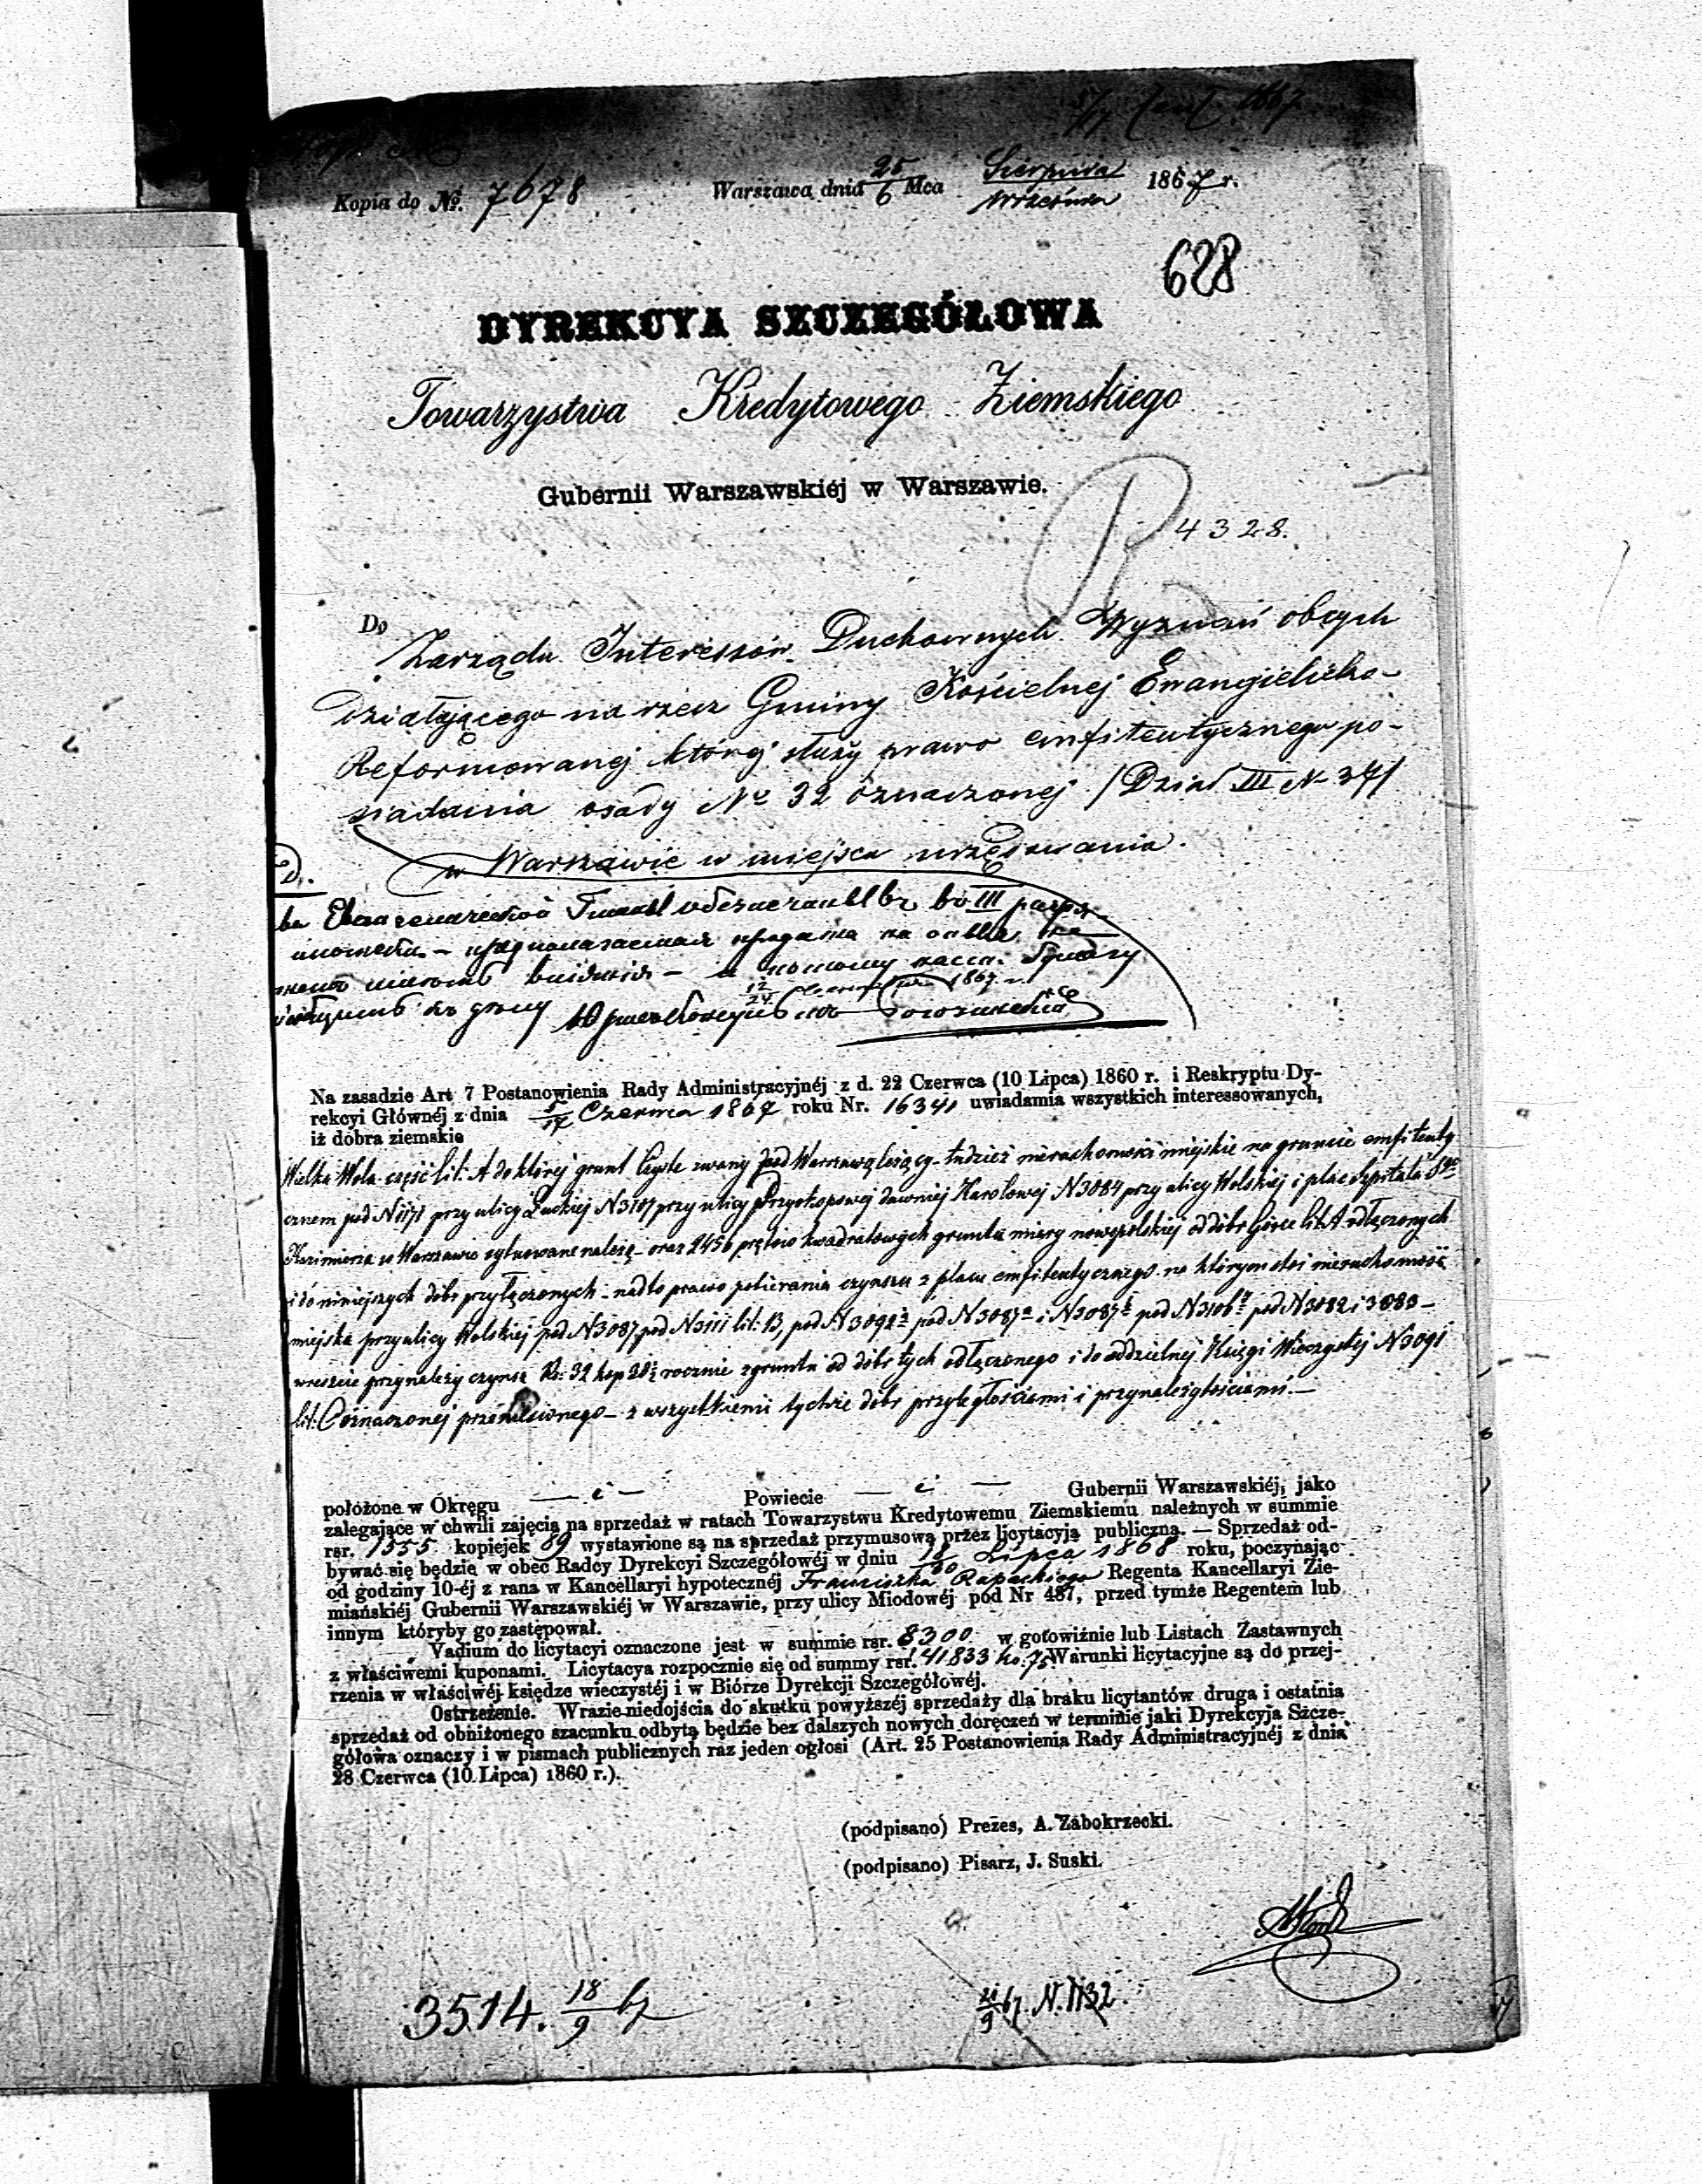 1867
Kopia do No. 7678 Warszawa dnia 25/6 Mca Sierpnia/Września 1867 r.
628
DYREKCYA SZCZEGÓŁOWA
Towarzystwa Kredytowego Ziemskiego
Gubernii Warszawskiéj w Warszawie.
4328.
Do
Zarządu Interessów Duchownych Wyznań obcych
działającego na rzecz Gminy Kościelnej Ewangielicko-
Reformowanej której służy prawo emfiteutycznego po-
siadania osady No 32 oznaczonej /Dział III N 34/
w Warszawie w miejscu urzędowania.
III
1867
Na zasadzie Art 7 Postanowienia Rady Administracyjnéj z d. 22 Czerwca (10 Lipca) 1860 r. i Reskryptu Dy-
rekcyi Głównéj z dnia 5/17 Czerwca 1867 roku Nr. 16341 uwiadamia wszystkich interessowanych,
iż dobra ziemskie
Wielka Wola część lit: A do której grunt Czyste zwany pod Warszawą leżący – tudzież nieruchomości miejskie na gruncie emfiteuty-
cznem pod N 1171 przy ulicy Łuckiej N 3107 przy ulicy Przyokopowej dawniej Karolowej N 3084 przy ulicy Wolskiej i plac Szpitala Sgo
Kazimierza w Warszawie sytuowane należą – oraz 2456 prętów kwadratowych gruntu miary nowopolskiej od dóbr Górce lit. A odłączonych
i do niniejszych dóbr przyłączonych – nadto prawo pobierania czynszu z placu emfiteutycznego na którym stoi nieruchomość
miejska przy ulicy Wolskiej pod N 3087 pod N 3111 lit: B, pod N 3092 pod N 3087a i N 3087b pod N 3106 pod N 3082 i 3083 –
wreszcie przynależy czynsz Rs: 32 kop 20½ rocznie z gruntu od dóbr tych odłączonego i do oddzielnej Księgi Wieczystej N 3091
lit. C oznaczonej przeniesionego – z wszystkiemi tychże dóbr przyległościami i przynależytościami. –
położone w Okręgu — i — Powiecie — i — Gubernii Warszawskiéj, jako
zalegające w chwili zajęcia na sprzedaż w ratach Towarzystwu Kredytowemu Ziemskiemu należnych w summie
rsr. 1555 kopiejek 09 wystawione są na sprzedaż przymusową przez licytacyją publiczną. — Sprzedaż od-
bywać się będzie w obec Radcy Dyrekcyi Szczegółowéj w dniu 18/30 Lipca 1868 roku, poczynając
od godziny 10-éj z rana w Kancellaryi hypotecznéj Franciszka Rapackiego Regenta Kancellaryi Zie-
miańskiéj Gubernii Warszawskiéj w Warszawie, przy ulicy Miodowéj pod Nr 487, przed tymże Regentem lub
innym któryby go zastępował.
Vadium do licytacyi oznaczone jest w summie rsr. 8300 w gotowiźnie lub Listach Zastawnych
z właściwemi kuponami. Licytacya rozpocznie się od summy rsr. 41833 ko. 75 Warunki licytacyjne są do przej-
rzenia w właściwéj księdze wieczystéj i w Biórze Dyrekcji Szczegółowéj.
Ostrzeżenie. W razie niedojścia do skutku powyższéj sprzedaży dla braku licytantów druga i ostatnia
sprzedaż od obniżonego szacunku odbytą będzie bez dalszych nowych doręczeń w terminie jaki Dyrekcyja Szcze-
gółowa oznaczy i w pismach publicznych raz jeden ogłosi (Art. 25 Postanowienia Rady Administracyjnéj z dnia
28 Czerwca (10 Lipca) 1860 r.).
(podpisano) Prezes, A. Zabokrzecki.
(podpisano) Pisarz, J. Suski.
3514. 18/9 67
21/9 67. N. 1132.